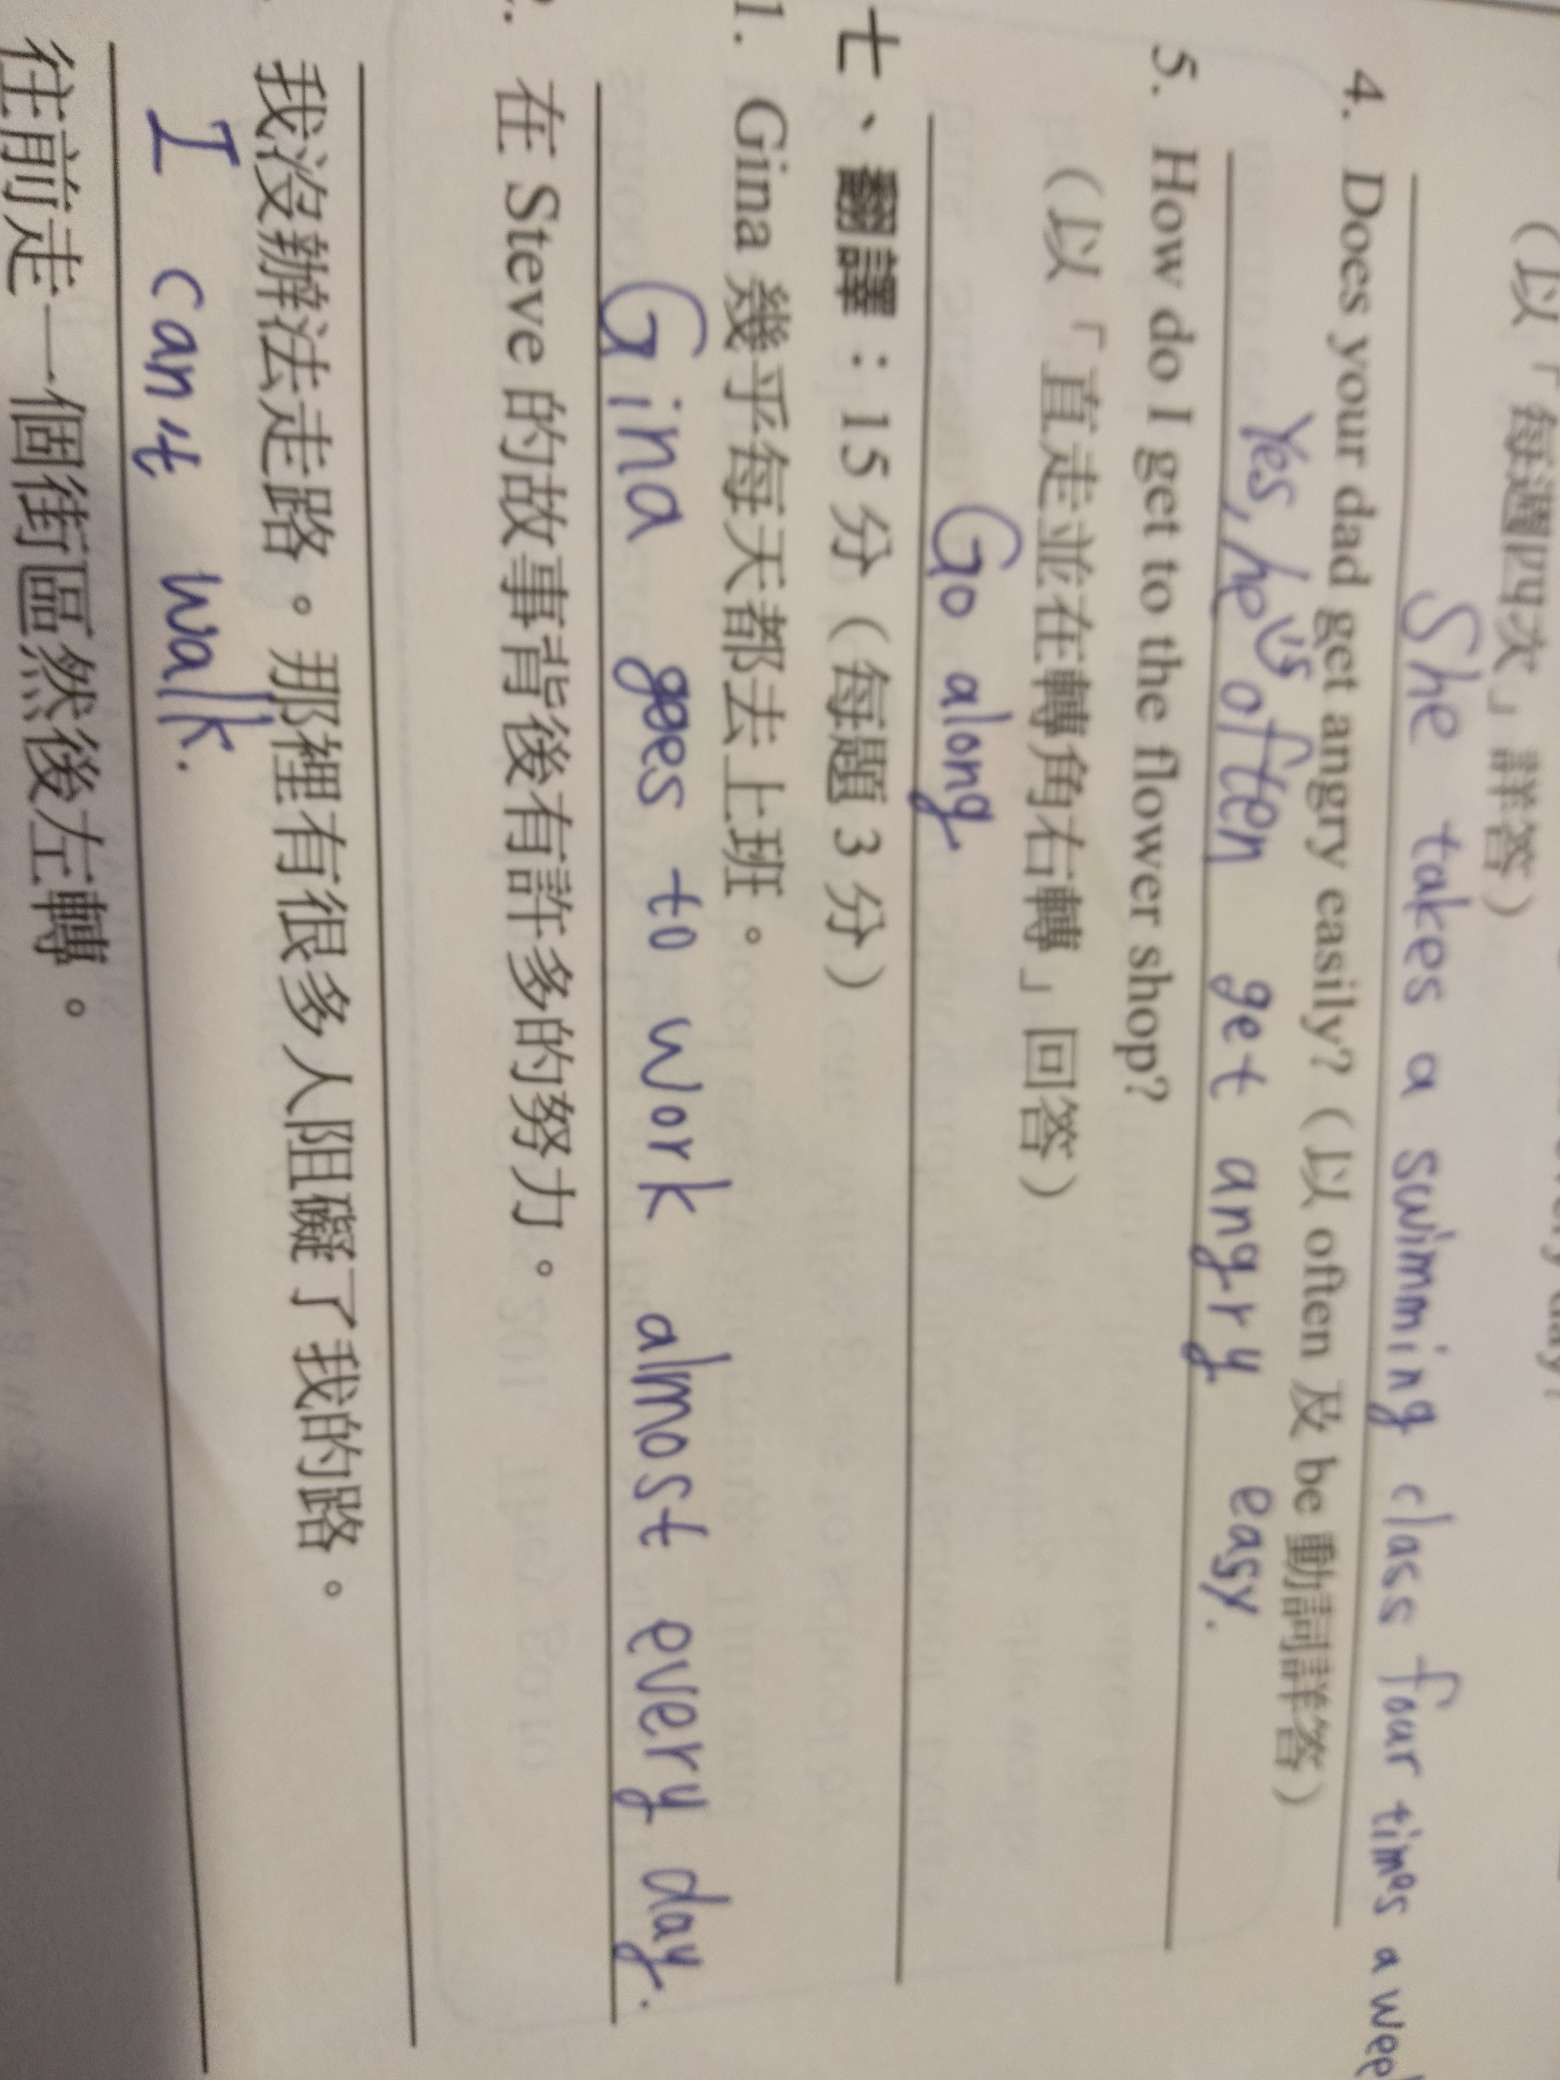 （以「每週四次」詳答）
She takes a swimming class four times a week
4. Does your dad get angry easily?（以 often 及 be 動詞詳答）
Yes, he is often get angry easy.
5. How do I get to the flower shop?
（以「直走並在轉角右轉」回答）
Go along
七、翻譯：15 分（每題 3 分）
1. Gina 幾乎每天都去上班。
Gina goes to work almost every day.
2. 在 Steve 的故事背後有許多的努力。
我沒辦法走路。那裡有很多人阻礙了我的路。
I can't walk.
往前走一個街區然後左轉。